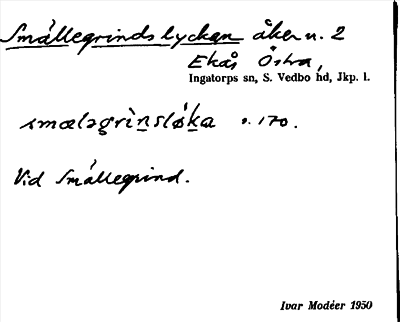 Smällegrindslyckan åker n. 2
Ekås Östra,
Ingatorps sn, S. Vedbo hd, Jkp. l.
smæləgrìnsløka s. 170.
Vid Smällegrind.
Ivar Modéer 1950